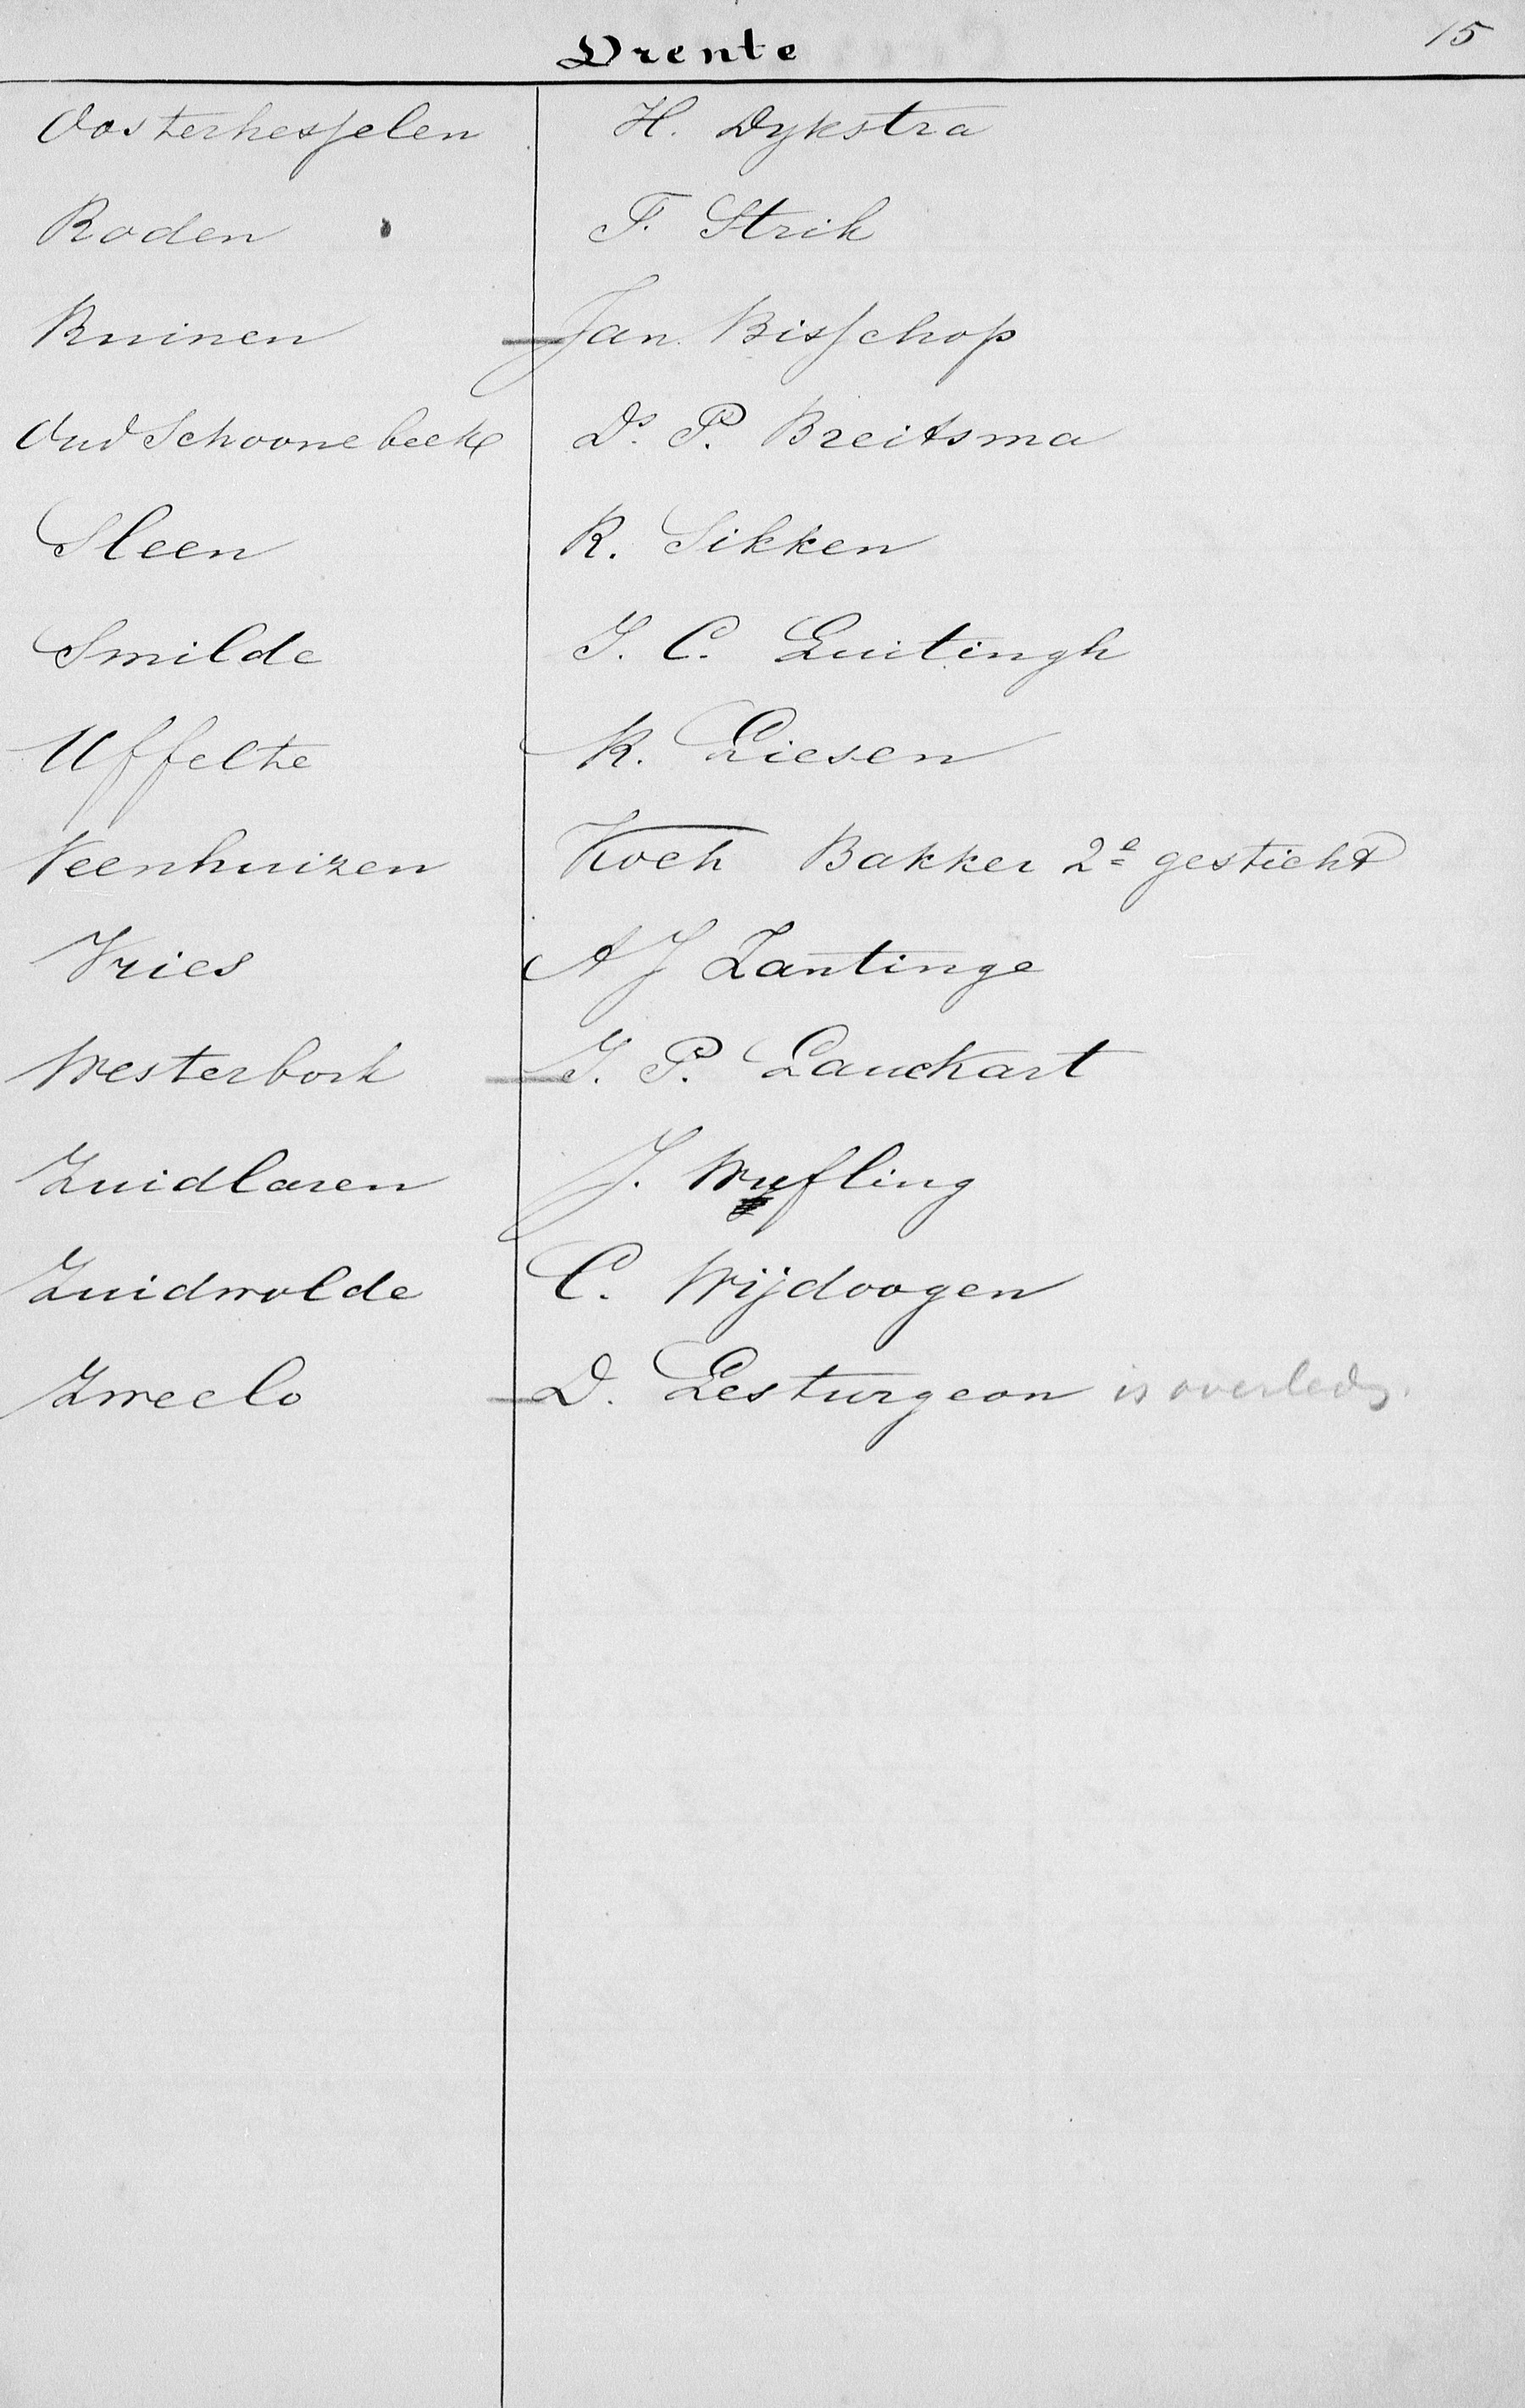 Drente
15
Oosterhesselen H. Dykstra
Roden F. Strik
Ruinen Jan Bisschop
Oud Schoonebeek Ds. P. Breitsma
Sleen R. Sikken
Smilde J. C. Luitingh
Uffelte R. Liesen
Veenhuizen Koch Bakker 2e gesticht
Vries A J Lantinge
Westerbork J. P. Lauckart
Zuidlaren J. Wufling
Zuidwolde C. Wijdoogen
Zweelo D. Lesturgeon is overleden.